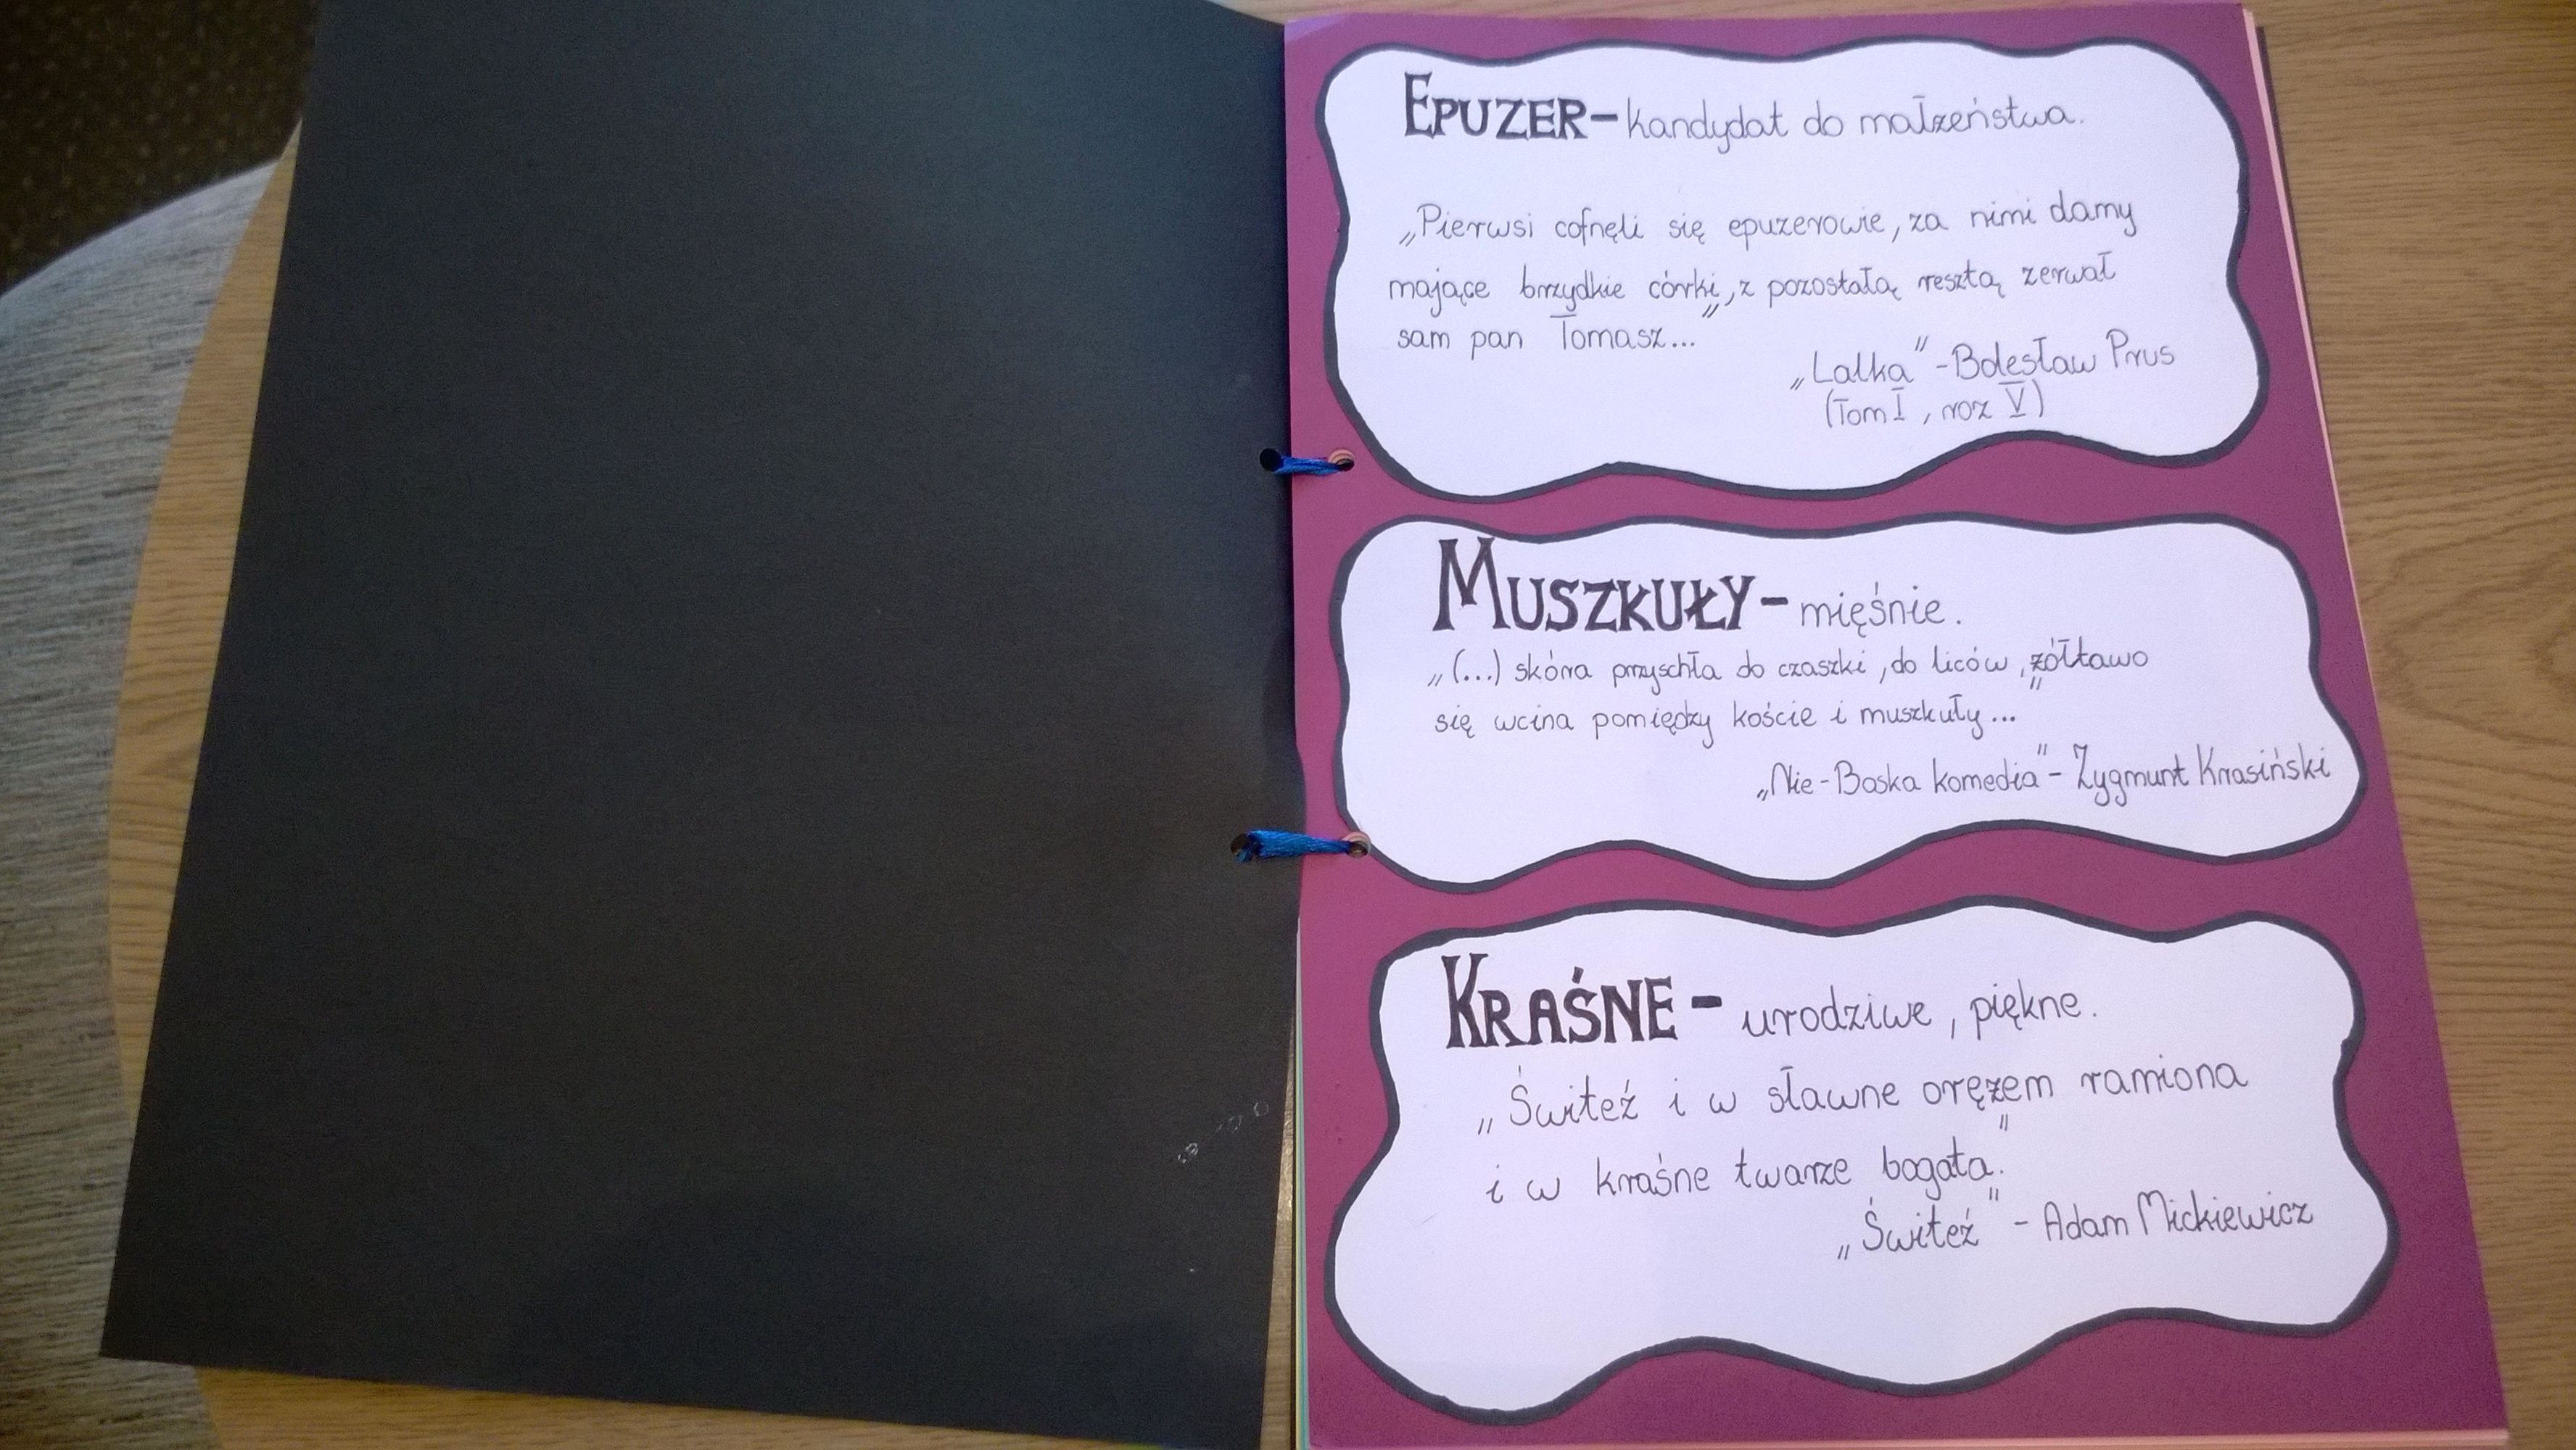 EPUZER - kandydat do małżeństwa.
„Pierwsi cofnęli się epuzerowie, za nimi damy
mające brzydkie córki, z pozostałą resztą zerwał
sam pan Tomasz..."
„Lalka" - Bolesław Prus
(Tom I, roz V)
MUSZKUŁY - mięśnie.
„(...) skóra przyschła do czaszki, do liców, żółtawo
się wcina pomiędzy koście i muszkuły..."
„Nie-Boska komedia" - Zygmunt Krasiński
KRAŚNE - urodziwe, piękne.
„Świteź i w sławne orężem ramiona
i w kraśne twarze bogata."
„Świteź" - Adam Mickiewicz